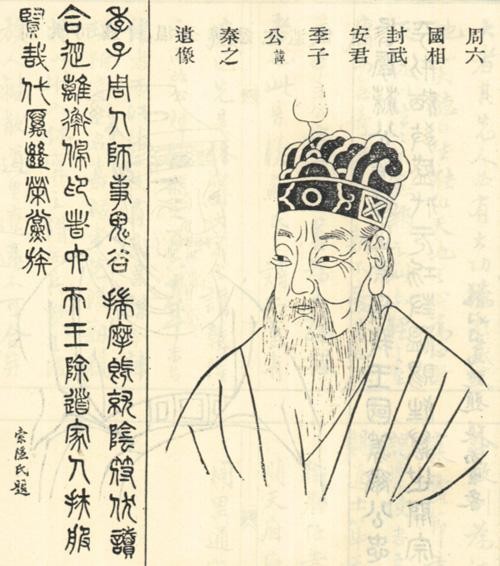 周六
國相
封武
安君
季子
公諱
秦之
遺像
季子周人師事鬼谷揣摩既就陰符伏讀
合從離衡佩印者六天王除道家人扶服
賢哉代厲繼榮黨族
索隱氏題